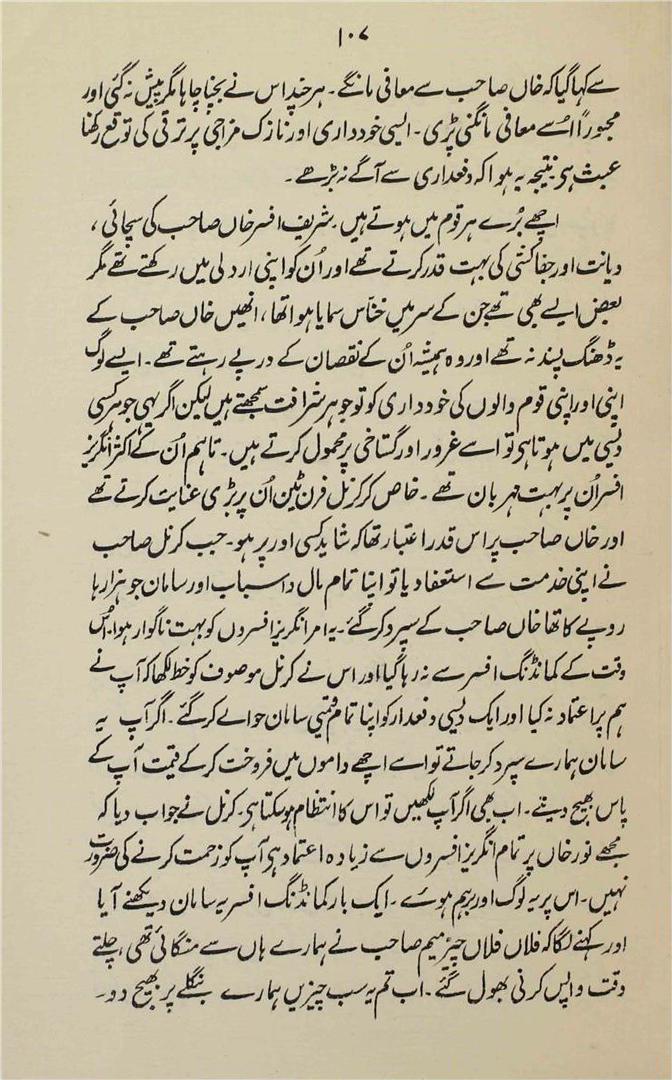 ۱۰۷
سے کہا گیا کہ خاں صاحب سے معافی مانگے۔ ہر چند اس نے بچنا چاہا مگر پیش نہ گئی اور
مجبوراً اسے معافی مانگنی پڑی۔ ایسی خودداری اور نازک مزاجی پر ترقی کی توقع رکھنا
عبث ہی نتیجہ یہ ہوا کہ دفعداری سے آگے نہ بڑھے۔
اچھے بُرے ہر قوم میں ہوتے ہیں۔ شریف افسر خاں صاحب کی سچائی،
دیانت اور جفاکشی کی بہت قدر کرتے تھے اور اُن کو اپنی اردلی میں رکھتے تھے مگر
بعض ایسے بھی تھے جن کے سر میں خنّاس سمایا ہوا تھا، انھیں خاں صاحب کے
یہ ڈھنگ پسند نہ تھے اور وہ ہمیشہ اُن کے نقصان کے درپے رہتے تھے۔ ایسے لوگ
اپنی اور اپنی قوم والوں کی خودداری کو تو جوہر شرافت سمجھتے ہیں لیکن اگر یہی جوہر کسی
دیسی میں ہوتا ہی تو اسے غرور اور گستاخی پر محمول کرتے ہیں۔ تاہم اُن کے اکثر انگریز
افسر اُن پر بہت مہربان تھے۔ خاص کر کرنل فرن ٹین اُن پر بڑی عنایت کرتے تھے
اور خاں صاحب پر اس قدر اعتبار تھا کہ شاید کسی اور پر ہو۔ جب کرنل صاحب
نے اپنی خدمت سے استعفا دیا تو اپنا تمام مال و اسباب اور سامان جو ہزارہا
روپے کا تھا خاں صاحب کے سپرد کر گئے۔ یہ امر انگریز افسروں کو بہت ناگوار ہوا۔ اُس
وقت کے کمانڈنگ افسر سے نہ رہا گیا اور اس نے کرنل موصوف کو خط لکھا کہ آپ نے
ہم پر اعتماد نہ کیا اور ایک دیسی دفعدار کو اپنا تمام قیمتی سامان حوالے کر گئے۔ اگر آپ یہ
سامان ہمارے سپرد کر جاتے تو اسے اچھے داموں میں فروخت کر کے قیمت آپ کے
پاس بھیج دیتے۔ اب بھی اگر آپ لکھیں تو اس کا انتظام ہو سکتا ہی۔ کرنل نے جواب دیا کہ
مجھے نور خاں پر تمام انگریز افسروں سے زیادہ اعتماد ہی آپ کو زحمت کرنے کی ضرورت
نہیں۔ اس پر یہ لوگ اور برہم ہوئے۔ ایک بار کمانڈنگ افسر یہ سامان دیکھنے آیا
اور کہنے لگا کہ فلاں فلاں چیز میم صاحب نے ہمارے ہاں سے منگائی تھی، چلتے
وقت واپس کرنی بھول گئے۔ اب تم یہ سب چیزیں ہمارے بنگلے پر بھیج دو۔